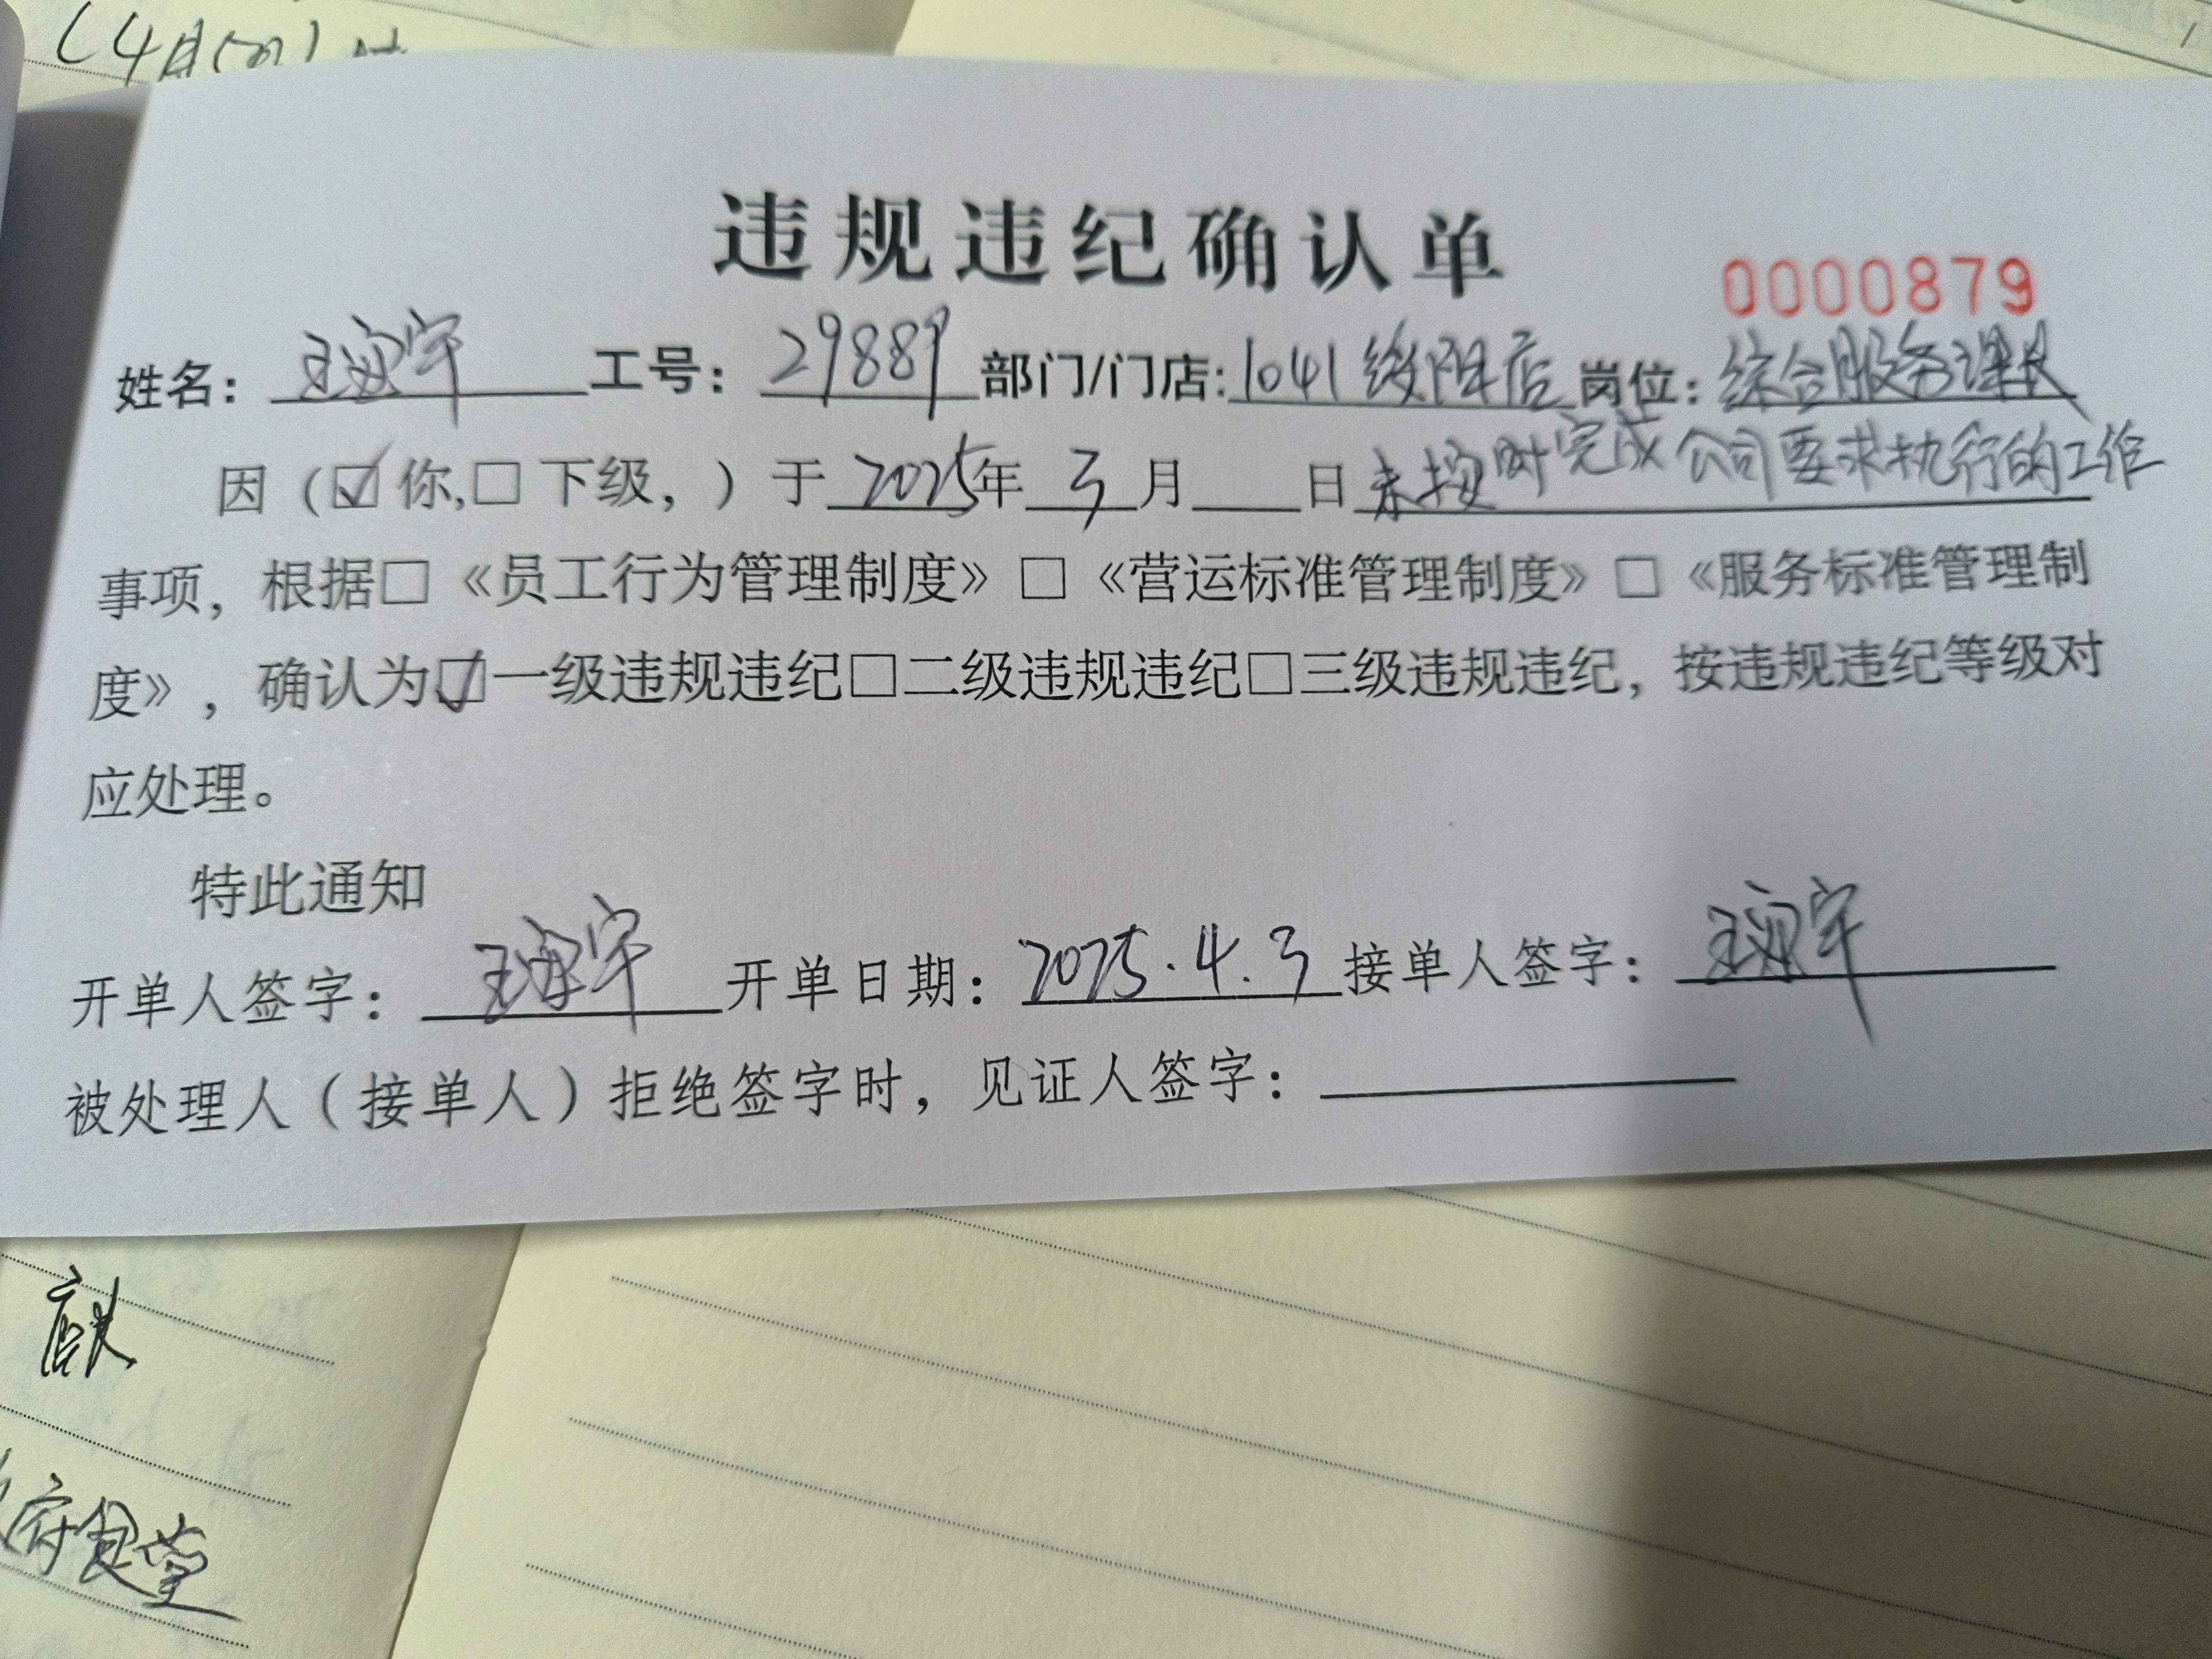 (4月
违规违纪确认单
0000879
姓名: 王 宇 工号: 29889 部门/门店: 1041绥阳店 岗位: 综合服务课长
因(☑你,□下级,)于2025年3月__日未按时完成公司要求执行的工作
事项,根据□《员工行为管理制度》□《营运标准管理制度》□《服务标准管理制
度》,确认为☑一级违规违纪□二级违规违纪□三级违规违纪,按违规违纪等级对
应处理。
特此通知
开单人签字: 王 宇 开单日期: 2025.4.3 接单人签字: 王 宇
被处理人(接单人)拒绝签字时,见证人签字:
店长
府食堂